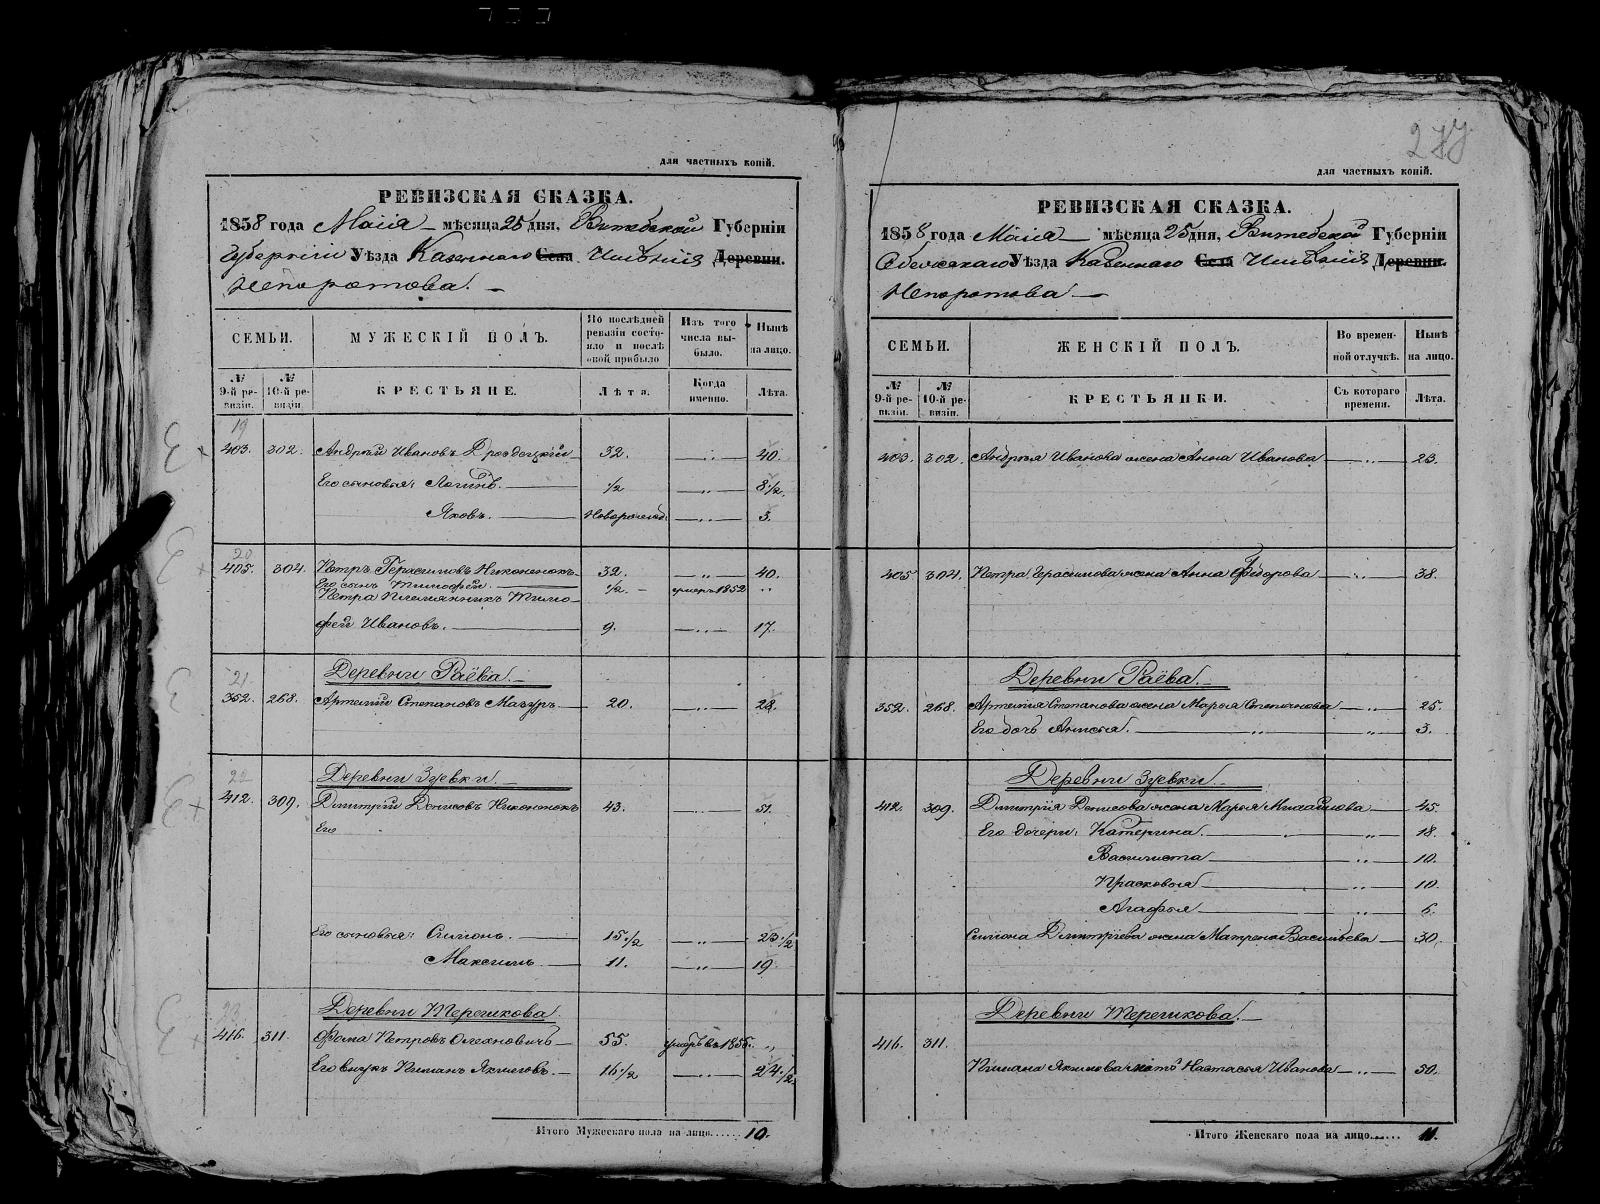 для частныхъ копій.
РЕВИЗСКАЯ СКАЗКА.
1858 года Маія мѣсяца 25 дня, Витебской Губерніи
Губерніи Уѣзда Казеннаго Села Имѣнія Деревни.
Непоротова.
СЕМЬИ.
МУЖЕСКІЙ ПОЛЪ.
По послѣдней ревизіи состояло и послѣ оной прибыло
Изъ того числа выбыло.
Нынѣ на лицо.
№ 9-й ревизіи.
№ 10-й ревизіи
КРЕСТЬЯНЕ.
Лѣта.
Когда именно.
Лѣта.
19
403. 302. Андрей Ивановъ Дроздецкій 32. „ 40.
Его сыновья: Логинъ. ½ „ 8½.
Яковъ. Новорожд. „ 3.
20
405. 304. Петръ Герасимовъ Никоненокъ 32. „ 40.
Его сынъ Тимофей. ½. умеръ 1852 „
Петра племянникъ Тимо-
фей Ивановъ. 9. „ 17.
Деревни Раёва.
21
352. 268. Артемій Степановъ Мазуръ. 20. „ 28.
Деревни Зуевки.
22
412. 309. Димитрій Денисовъ Никоненокъ 43. „ 51.
Его
Его сыновья: Симонъ. 15½ „ 23½
Максимъ 11. „ 19.
Деревни Терешкова.
23
416. 311. Фома Петровъ Олехновичъ 55. умеръ въ 1855. „
Его внукъ Пиманъ Якимовъ. 16½ „ 24½
Итого Мужескаго пола на лицо...... 10.
277
для частныхъ копій.
РЕВИЗСКАЯ СКАЗКА.
1858 года Маіа мѣсяца 25 дня, Витебской Губерніи
Себежскаго Уѣзда Казеннаго Села Имѣнія Деревни.
Непоротова
СЕМЬИ.
ЖЕНСКІЙ ПОЛЪ.
Во временной отлучкѣ.
Нынѣ на лицо.
№ 9-й ревизіи.
№ 10-й ревизіи.
КРЕСТЬЯНКИ.
Съ котораго времени.
Лѣта.
403. 302. Андрея Иванова жена Анна Иванова „ 23.
405 304. Петра Герасимова жена Анна Фёдорова „ 38.
Деревни Раёва.
352. 268. Артемія Степанова жена Марья Степанова „ 25.
Его дочь Анисья. „ „ 3.
Деревни Зуевки
412. 309. Димитрія Денисова жена Марья Михайлова 45.
Его дочери: Катерина. „ 18.
Василиста „ 10.
Прасковья „ 10.
Агафья „ 6.
Симона Дмитріева жена Матрена Васильева 30.
Деревни Терешкова.
416. 311.
Пимана Якимова мать Настасья Иванова „ 50.
Итого Женскаго пола на лицо...... 11.